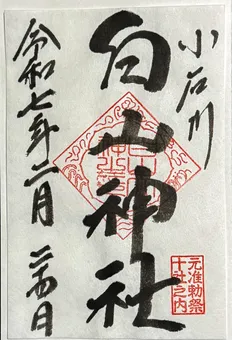 小石川
白山神社
元准勅祭
十社之内
令和七年二月